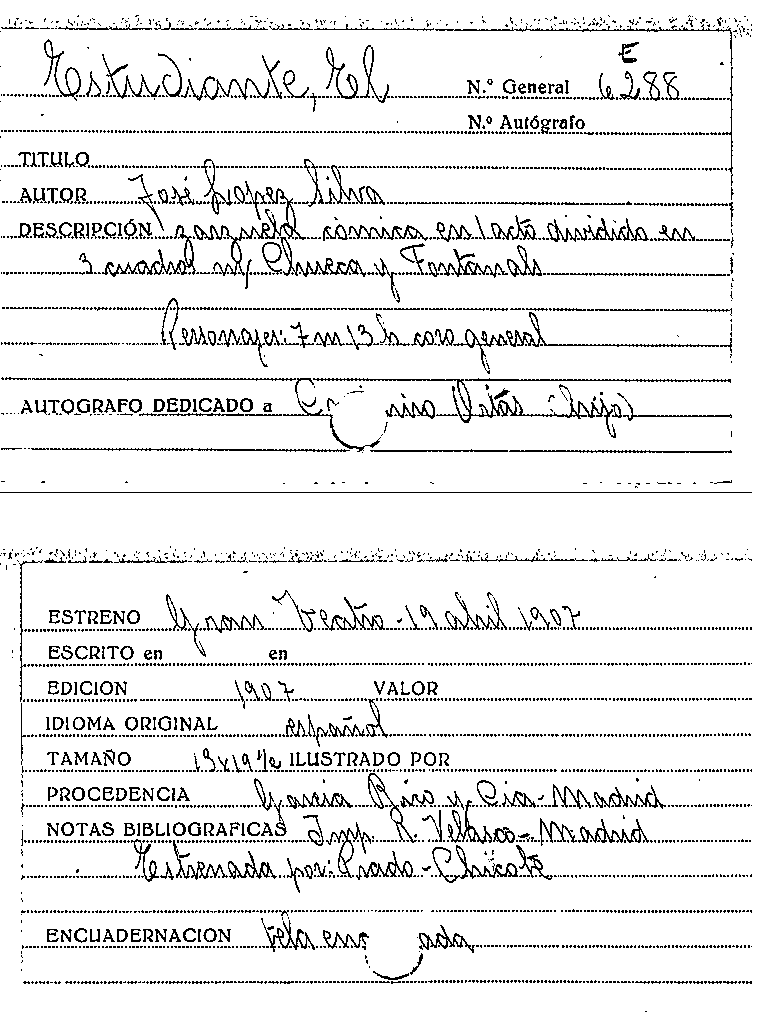 E
Estudiante, El N.º General 6288
N.º Autógrafo
TITULO
AUTOR José Lopez Silva
DESCRIPCIÓN zarzuela cómica en 1 acto dividido en
3 cuadros m/ Chueca y Fontanals
Personajes: 7 m 13 h coro general
AUTOGRAFO DEDICADO a Ortas (hijo)
ESTRENO Gran Teatro - 19 abril 1907
ESCRITO en en
EDICION 1907 VALOR
IDIOMA ORIGINAL español
TAMAÑO 13x19½ ILUSTRADO POR
PROCEDENCIA Garcia Rico y Cia - Madrid
NOTAS BIBLIOGRAFICAS Imp. R. Velasco - Madrid
Estrenada por: Prado - Chicote
ENCUADERNACION tela